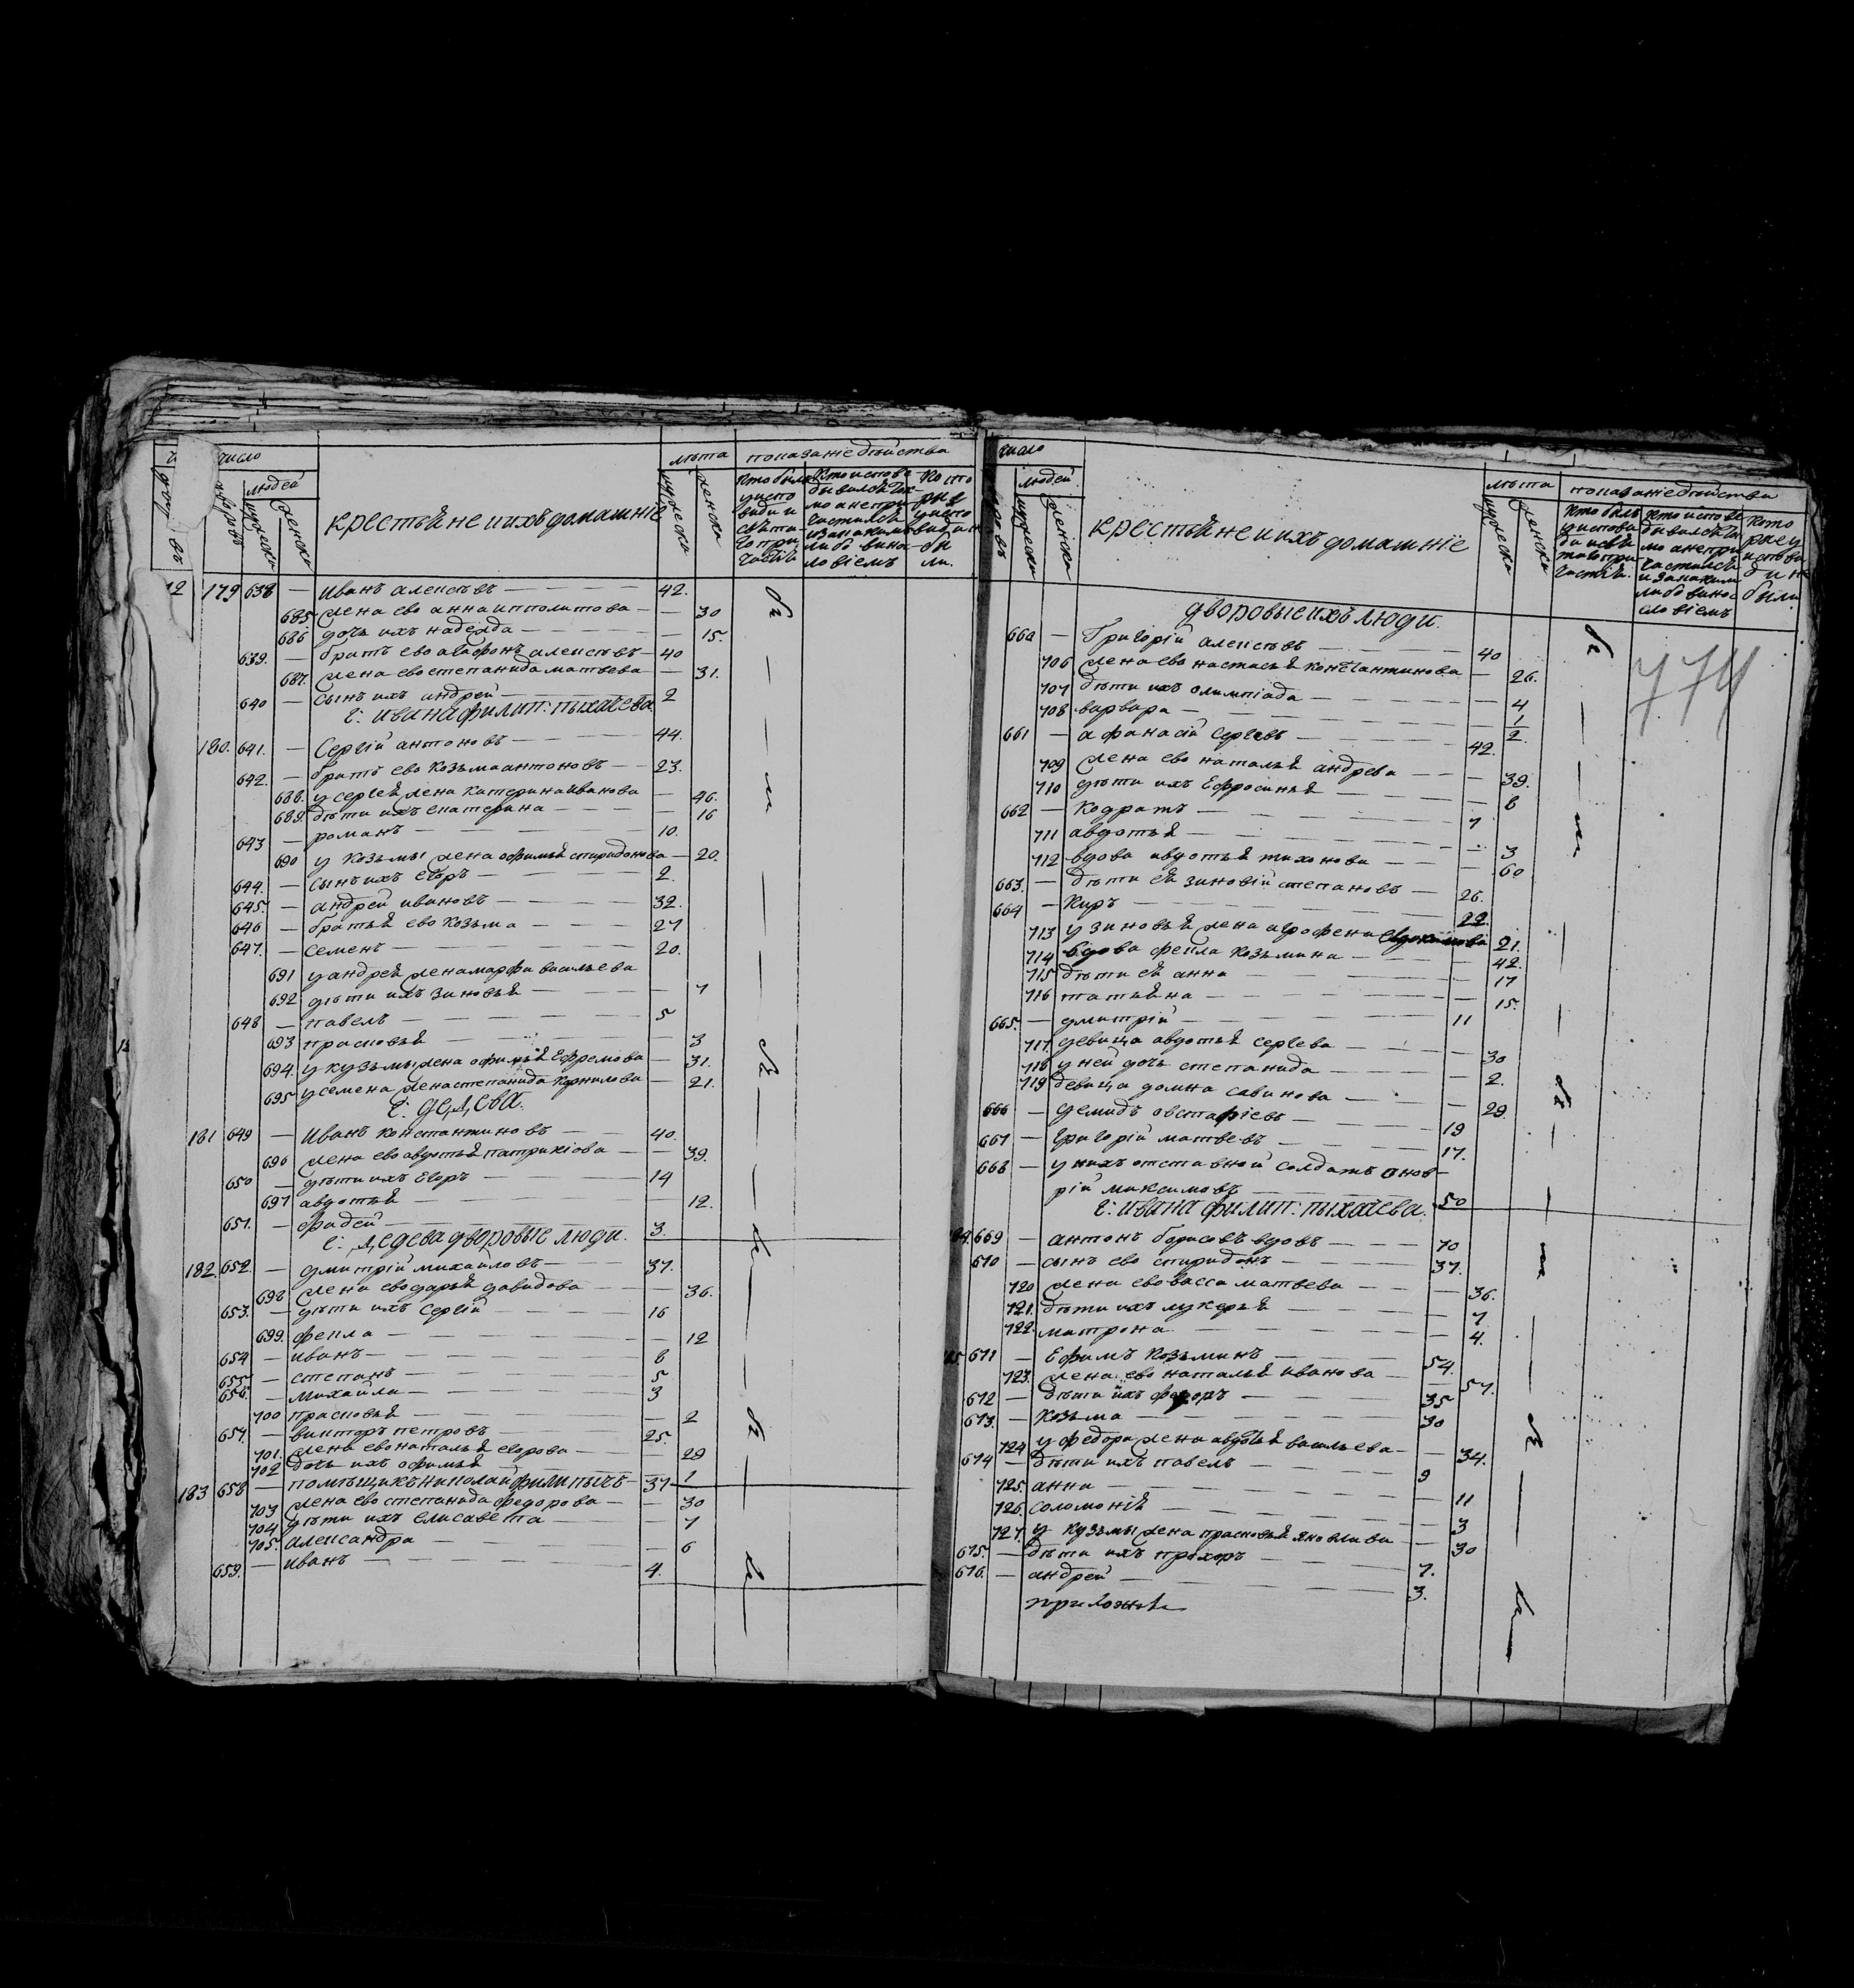 число
людей
дворовъ
мужеска
женска
крестьяне и ихъ домашніе
лѣта
мужеска
женска
показаніе дѣйства
12 179 638 — Иванъ алексѣвъ — 42.
685 жена ево анна ипполитова — 30
686 дочь ихъ надежда — 15.
639. — братъ ево агафонъ алексѣвъ — 40
687. жена ево степанида матвева — 31.
640 — сынъ ихъ андрей — 2
г: ивана филип: пыхачева
180. 641. — Сергій антоновъ — 44.
642. — братъ ево козьма антоновъ — 23.
688. у сергея жена катерина иванова — 46.
689. дѣти ихъ екатерина — 16
643 — романъ — 10.
690 у козьмы жена офимья спиридонова — 20.
644. — сынъ ихъ егоръ — 2.
645. — андрей ивановъ — 32.
646 — братья ево козьма — 27
647. — семенъ — 20.
691 у андрея жена марфа васильева
692 дѣти ихъ зиновья — 7
648 — павелъ — 5
693 прасковья — 3
694. у кузьмы жена офимья Ефремова — 31.
695 у семена жена степанида корнилова — 21.
181 649 — Иванъ константиновъ — 40.
696 жена ево авдотья патрикіова — 39.
650 — дѣти ихъ Егоръ — 14
697 авдотья — 12.
651. — фадей — 3.
дворовые люди.
182. 652. — дмитрій михайловъ — 37.
698 жена ево дарья давидова — 36.
653. — дѣти ихъ Сергій — 16
699. фекла — 12
654 — иванъ — 8
655 — степанъ — 5
656. — михайла — 3
700 прасковья — 2
657. — викторъ петровъ — 25.
701. жена ево наталья егорова — 29
702 дочь ихъ офимья — 1
183 658 — помѣщикъ николай филипычъ — 37
703 жена ево степанида федорова — 30
704 дѣти ихъ елисавета — 7
705. александра — 6
659. — иванъ — 4.
число
людей
мужеска
женска
крестьяне и ихъ домашніе
лѣта
мужеска
женска
показаніе дѣйства
774
дворовые ихъ люди.
660 — Григорій алексѣвъ — 40
706 жена ево настасья константинова — 26.
707 дѣти ихъ олимпіада — 4
708 варвара — 1/2.
661 — афанасій сергевъ — 42.
709 жена ево наталья андрева — 39.
710 дѣти ихъ Ефросинья — 8
662 — кодратъ — 7
711 авдотья — 3
712 вдова авдотья тихонова — 60
663. — дѣти ея зиновій степановъ — 26.
664 — киръ — 22.
713 у зиновья жена агрофена евдокимова 21.
714 вдова фекла козьмина — 42.
715 дѣти ея анна — 17
716 татьяна — 15.
665. — дмитрій — 11
717. девица авдотья сергева — 30
718 у ней дочь степанида — 2.
719 девица домна савинова — 29.
666 — демидъ овстафіевъ — 19
667 — григорій матвевъ — 17.
668 — у нихъ отставной солдатъ онов-
рій максимовъ — 50
г: ивана филип: пыхачева.
184. 669 — антонъ борисовъ вдовъ — 70
670 — сынъ ево спиридонъ — 37.
720 жена ево васса матвева — 36.
721. дѣти ихъ лукерья — 7
722. матрона — 4.
185 671 — Ефимъ козьминъ — 54.
723. жена ево наталья иванова — 57.
672 — дѣти ихъ федоръ — 35
673. — козьма — 30
724 у федора жена авдотья васильева — 34.
674 — дѣти ихъ павелъ — 9
725. анна — 11
726. соломонія — 3
727. у кузьмы жена прасковья яковлева — 30
675. — дѣти ихъ прохоръ — 7.
676. — андрей — 3.